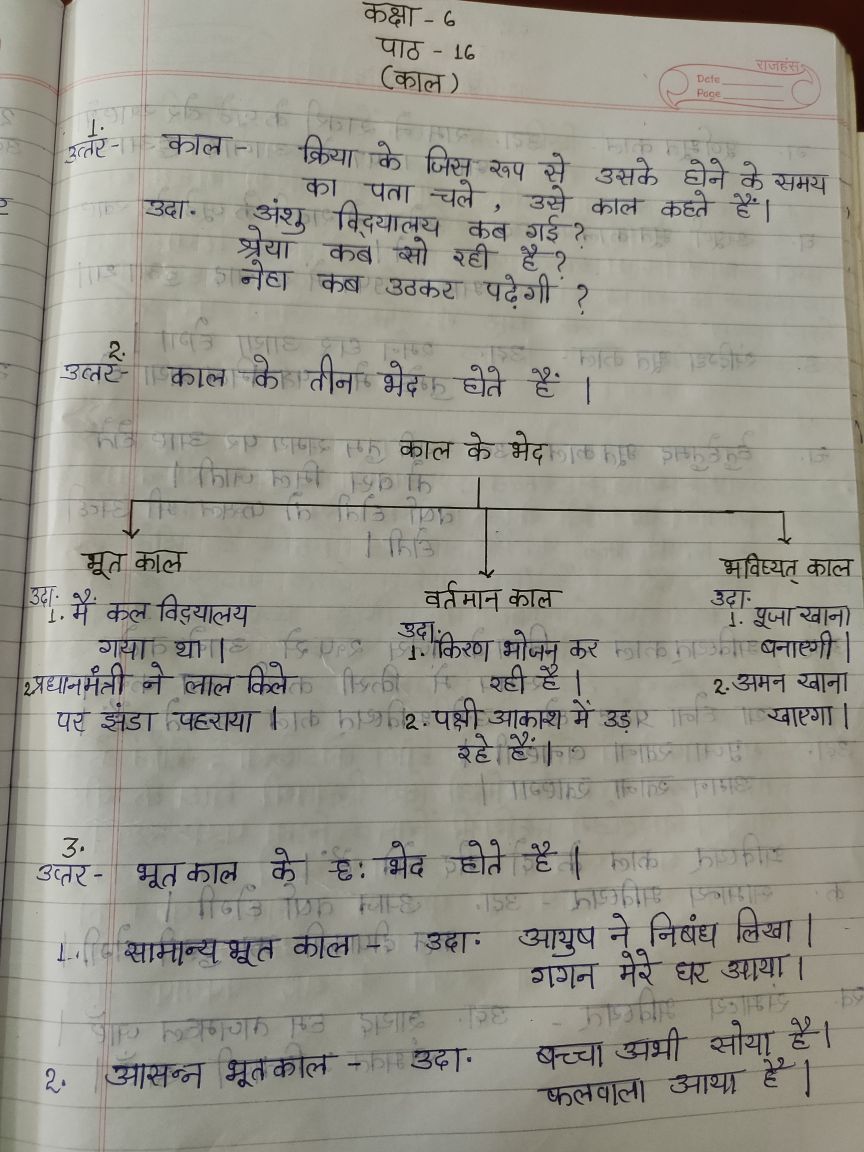 कक्षा - 6
पाठ - 16
(काल)
राजहंस
Date
Page
1.
उत्तर- काल - क्रिया के जिस रूप से उसके होने के समय
का पता चले, उसे काल कहते हैं।
उदा. अंशु विद्यालय कब गई?
श्रेया कब सो रही है?
नेहा कब उठकर पढ़ेगी?
2.
उत्तर- काल के तीन भेद होते हैं।
काल के भेद
भूत काल
उदा.
1. मैं कल विद्यालय
गया था।
2. प्रधानमंत्री ने लाल किले
पर झंडा फहराया।
वर्तमान काल
उदा.
1. किरण भोजन कर
रही है।
2. पक्षी आकाश में उड़
रहे हैं।
भविष्यत् काल
उदा.
1. पूजा खाना
बनाएगी।
2. अमन खाना
खाएगा।
3.
उत्तर- भूत काल के छः भेद होते है।
1. सामान्य भूत काल - उदा. आयुष ने निबंध लिखा।
गगन मेरे घर आया।
2. आसन्न भूतकाल - उदा. बच्चा अभी सोया है।
फलवाला आया है।